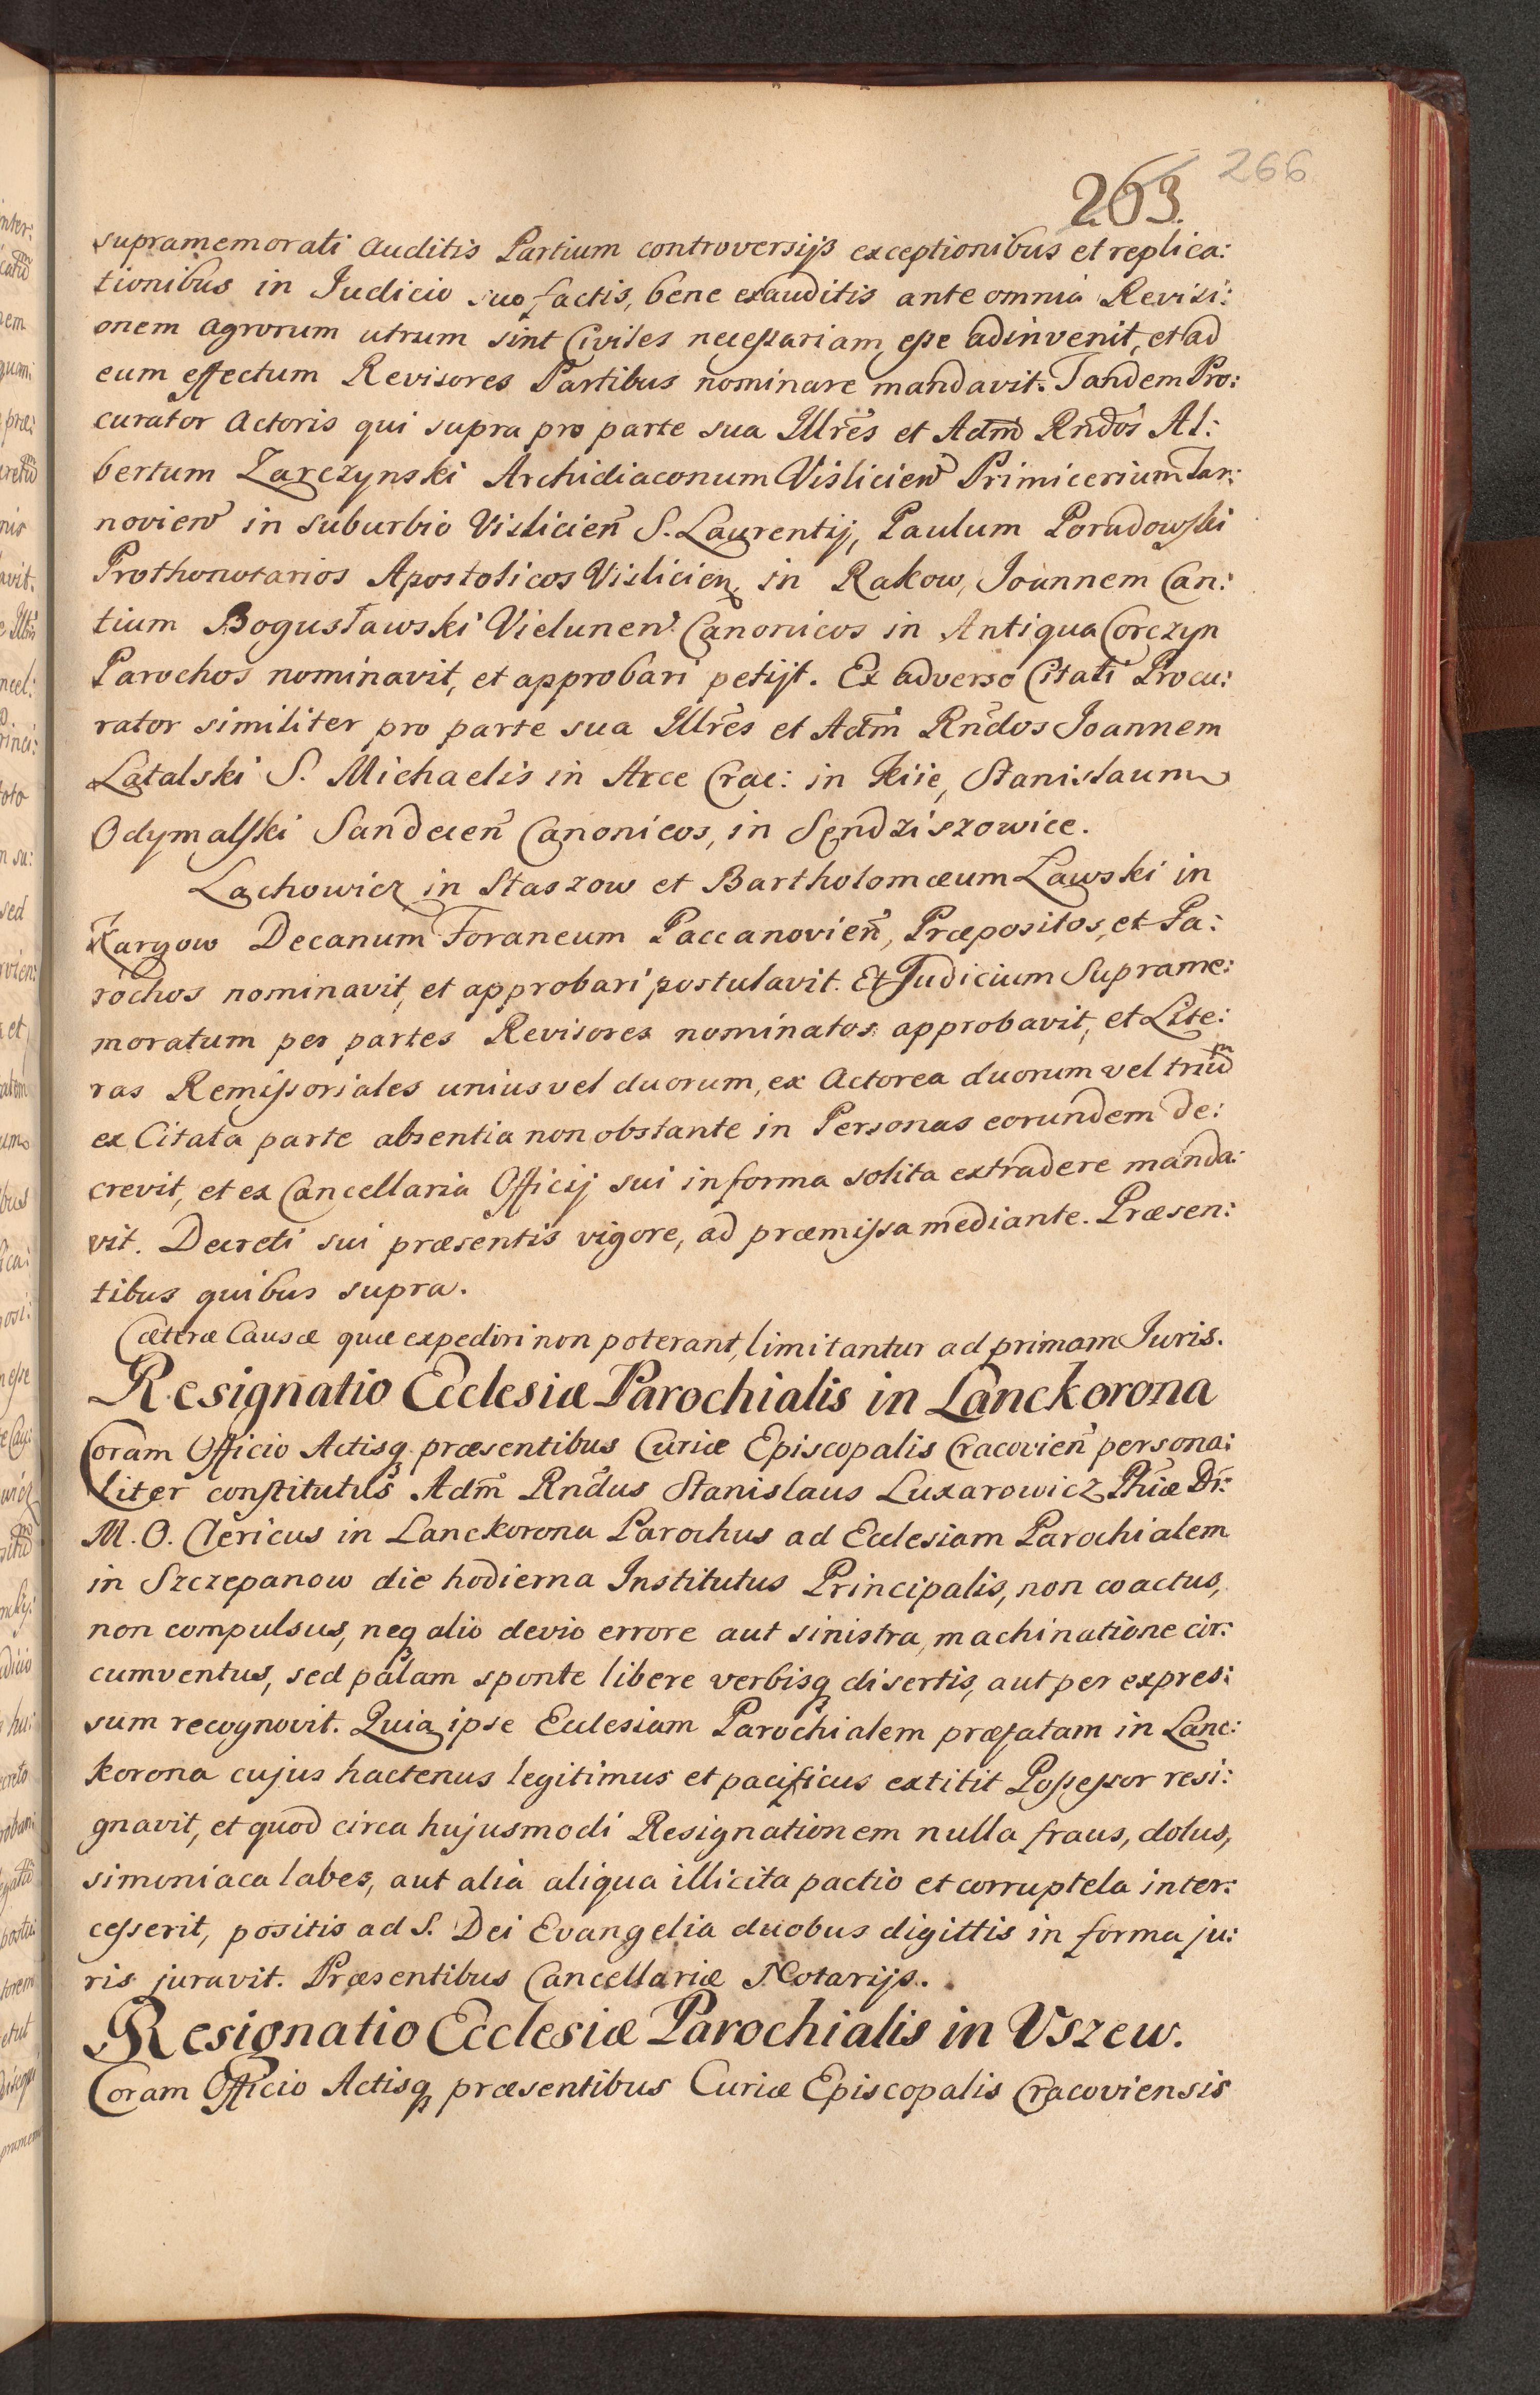 263. 266
supramemorati auditis Partium controversijs exceptionibus et replica:
tionibus in Iudicio suo factis, bene exauditis ante omnia Revisi:
onem agrorum utrum sint Civiles necessariam, esse adinvenit, et ad
eum effectum Revisores Partibus nominare mandavit. Tandem Pro:
curator Actoris qui supra pro parte sua Illrẽs et Adm̃ Rndõs Al:
bertum Zarczynski Archidiaconum Vislicień Primicerium Tar:
novień in suburbio Vislicień S. Laurentij, Paulum Poradowski
Prothonotarios Apostolicos Vislicien, in Rakow, Joannem Can:
tium Bogusławski Vielunen̄ Canonicos in Antiqua Corczyn
Parochos nominavit, et approbari petijt. Ex adverso Citati Procu:
rator similiter pro parte sua Illrẽs et Adm̃ Rñdos Joannem
Latalski S. Michaelis in Arce Crac: in Kiie, Stanislaum
Odymalski Sandecień Canonicos, in Sendziszowice.
Lachowicz in Staszow et Bartholomæum Lawski in
Kargow Decanum Foraneum Paccanovień, Præpositos, et Pa:
rochos nominavit, et approbari postulavit. Et Judicium Suprame:
moratum per partes Revisores nominatos approbavit, et Lite:
ras Remissoriales unius vel duorum, ex Actorea duorum vel triũm
ex Citata parte absentia non obstante in Personas eorundem de:
crevit, et ex Cancellaria Officij sui in forma solita extradere manda:
vit. Decreti sui præsentis vigore, ad præmissa mediante. Præsen:
tibus quibus supra.
Cæteræ Causæ quæ expediri non poterant, limitantur ad primam Iuris.
Resignatio Ecclesiæ Parochialis in Lanckorona
Coram Officio Actisq præsentibus Curiæ Episcopalis Cracovień persona:
liter constitutus Adm̃ Rñdus Stanislaus Luxarowicz Phiæ Dr:
M. O. Clericus in Lanckorona Parochus ad Ecclesiam Parochialem
in Szczepanow die hodierna Institutus Principalis, non coactus,
non compulsus, neq alio devio errore aut sinistra, machinatione cir:
cumventus, sed palam sponte libere verbisq disertis, aut per expres:
sum recognovit. Quia ipse Ecclesiam Parochialem præfatam in Lanc:
korona cujus hactenus legitimus et pacificus extitit Possessor resi:
gnavit, et quod circa hujusmodi Resignationem nulla fraus, dolus,
simoniaca labes, aut alia aliqua illicita pactio et corruptela inter:
cesserit, positis ad S. Dei Evangelia duobus digittis in forma ju:
ris juravit. Præsentibus Cancellariæ Notarijs.
Resignatio Ecclesiæ Parochialis in Vszew.
Coram Officio Actisq præsentibus Curiæ Episcopalis Cracoviensis